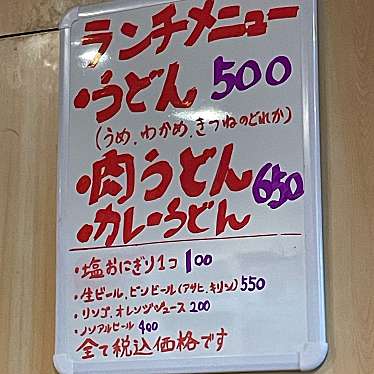 ランチメニュー
・うどん 500
(うめ、わかめ、きつねのどれか)
・肉うどん
・カレーうどん 650
・塩おにぎり1コ 100
・生ビール、ビンビール(アサヒ、キリン) 550
・リンゴ、オレンジジュース 200
・ノンアルビール 400
全て税込価格です